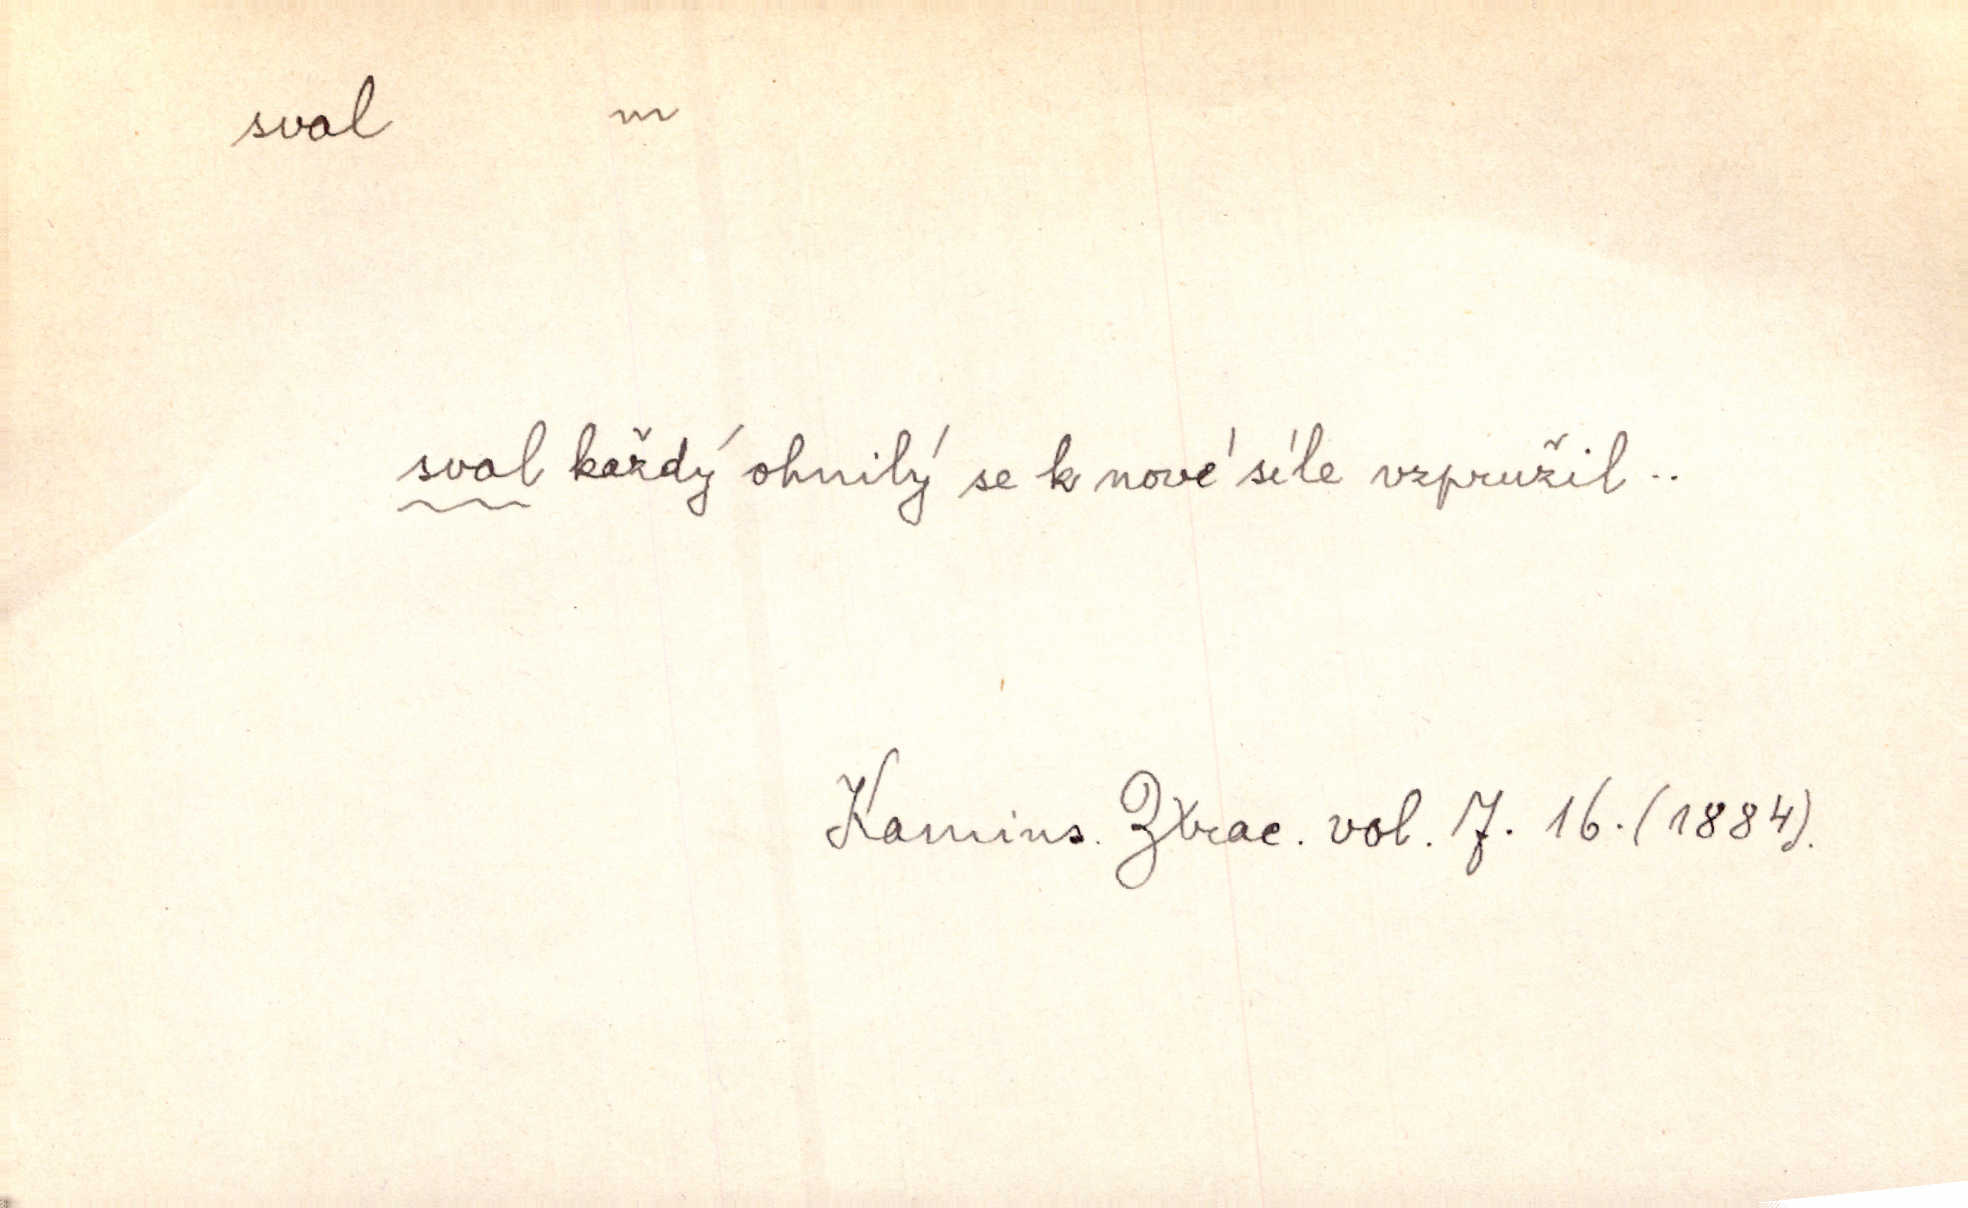 sval m
sval každý ohnilý se k nové síle vzpružil..
Kamins. Ztrac. vol. 7. 16. (1884).